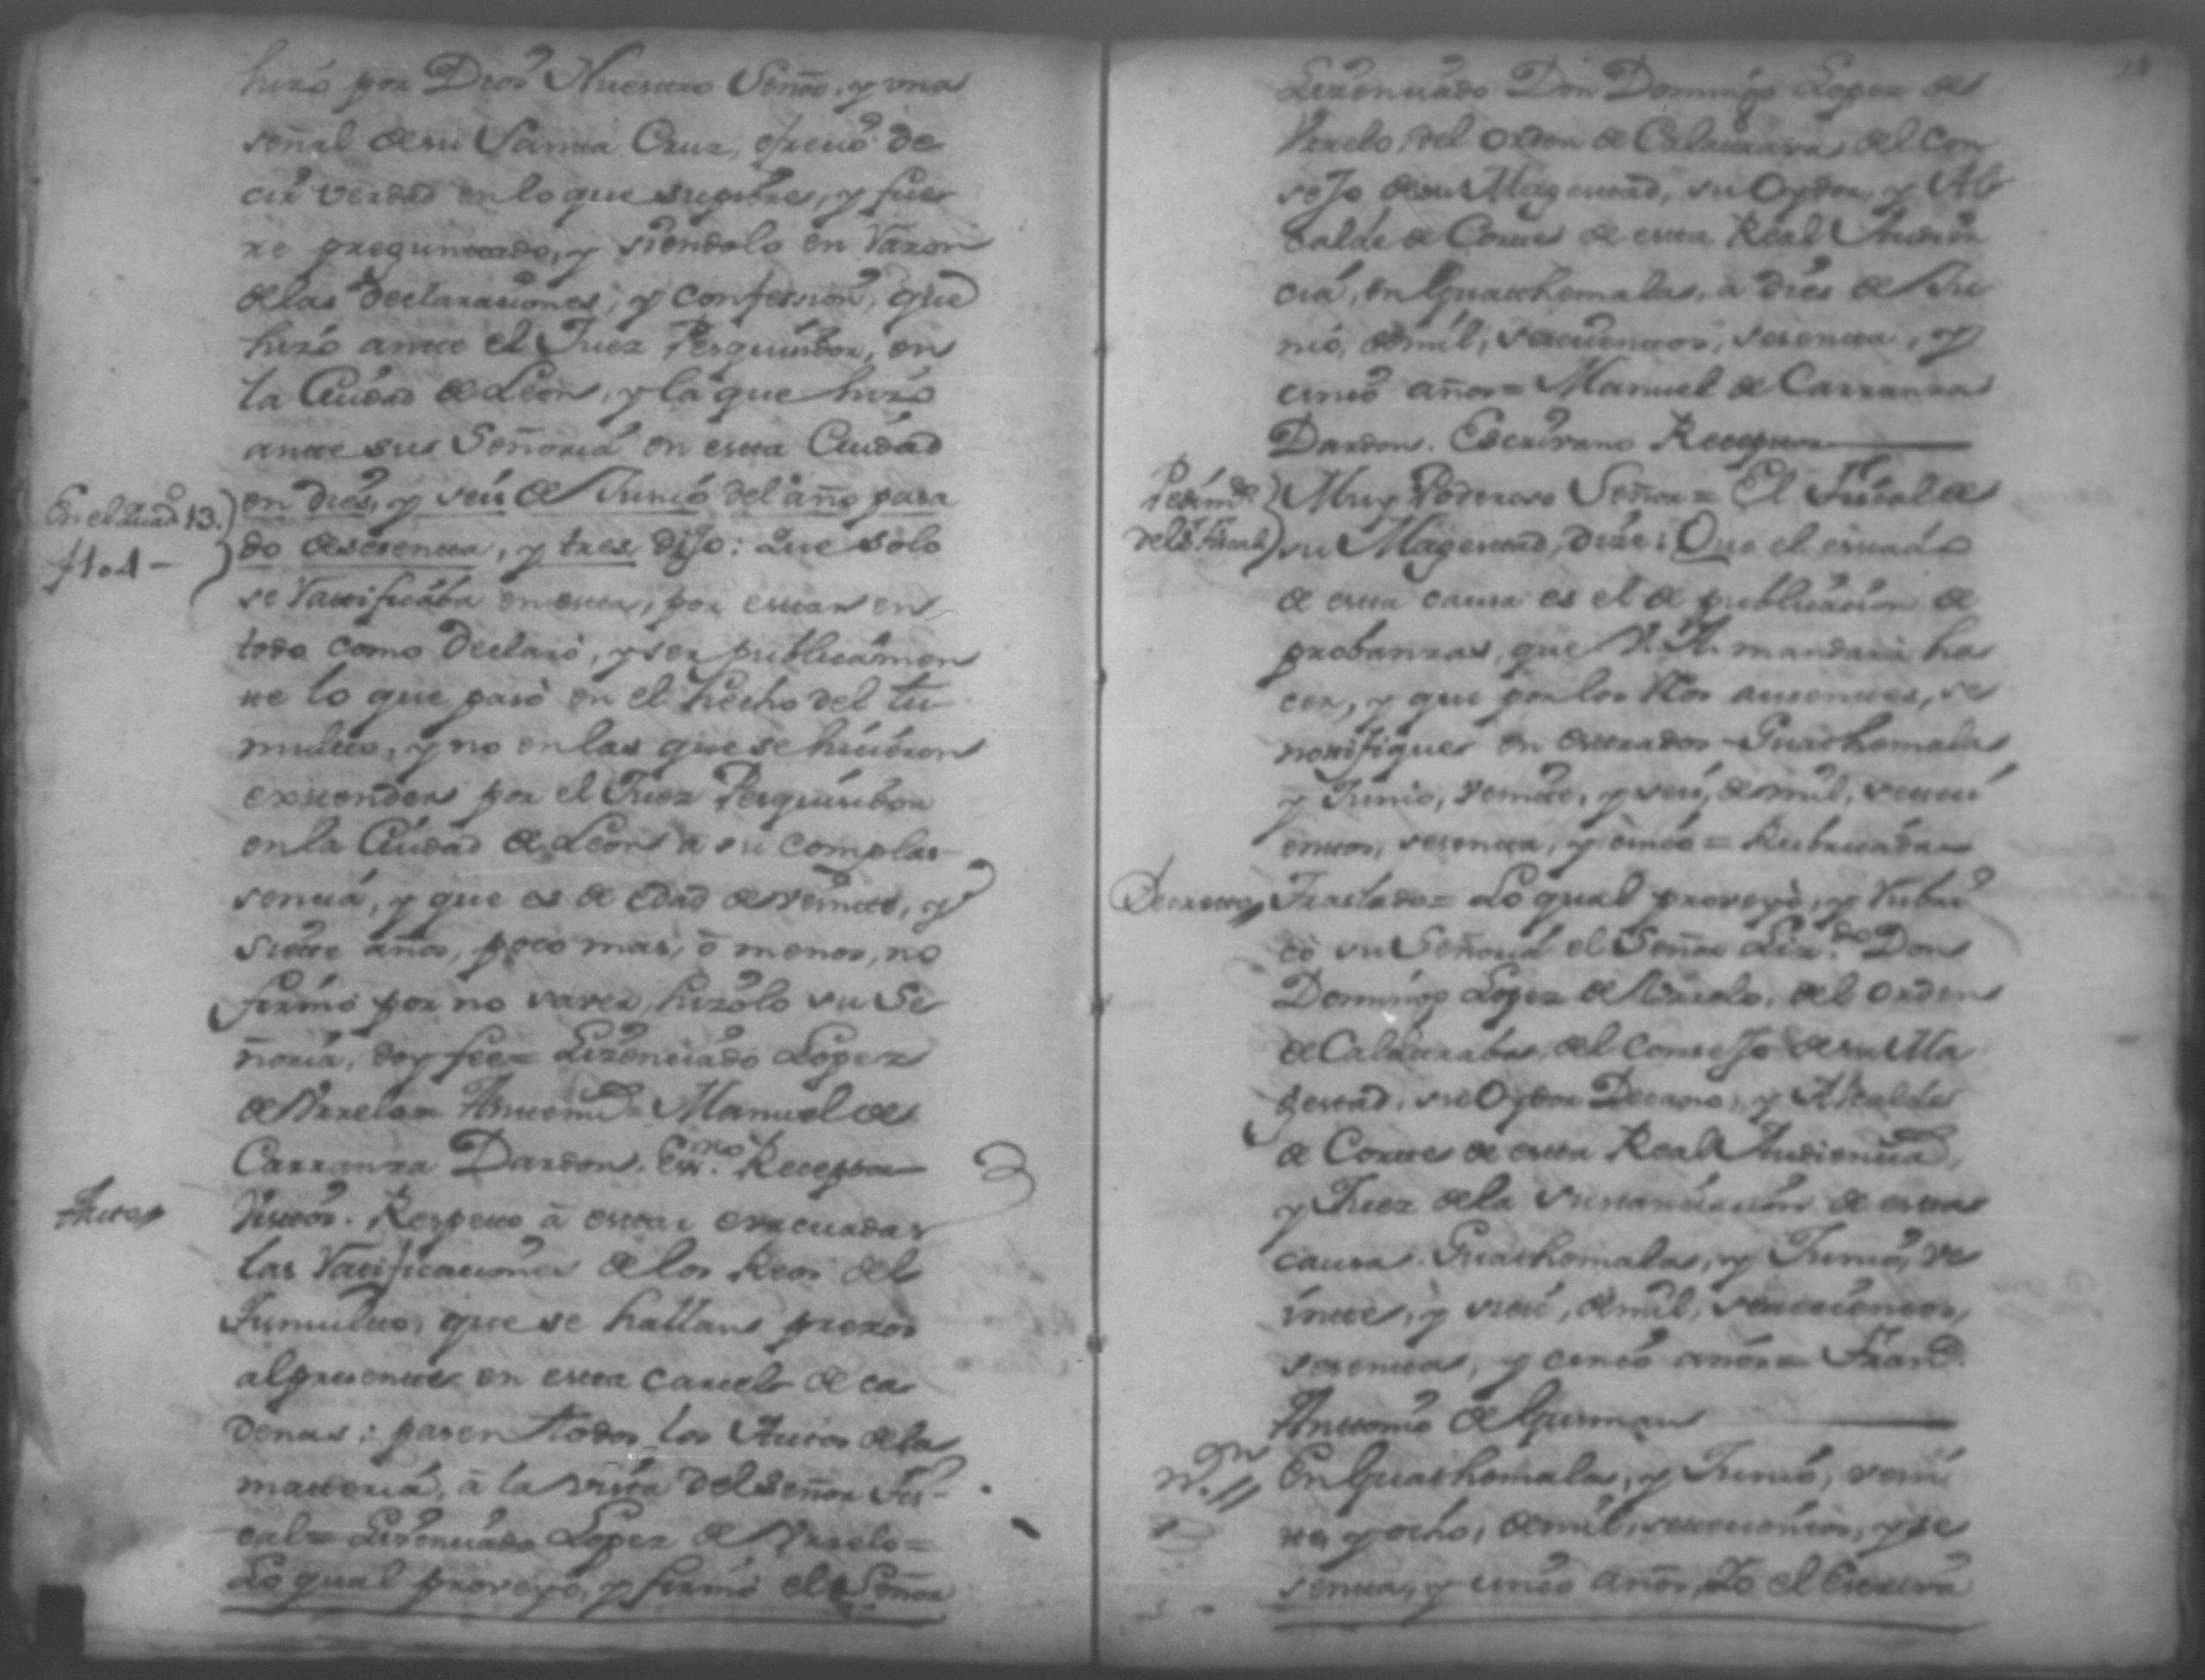 hizó por Dios Nuestro Señor, y una
señal de su Santa Cruz, ofreció de
cir verdad en lo que supiere, y fue
re preguntado, y siendolo en Razon
de las Declaraciones, y confession, que
hizó ante el Juez Pesquiridor, en
la Ciudad de Leon, y la que hizó
ante su Señoria en esta Ciudad
En el Quad.º 13.
en dies, y seis de Junio del año pasa
f 1o.1 -
do de sesenta, y tres, dijo: Que solo
se Ratificaba en esta, por estar en
todo como Declaró, y ser publicamen
te lo que pasó en el hecho del tu
multo, y no en las que se hicieron
extender por el Juez Pesquiridor
en la Ciudad de Leon a su complas
sencia, y que es de edad de veinte, y
siete años, poco mas, ò menos, no
firmó por no saver, hizólo su Se
ñoria, doy fee= Lizenciado Lopez
de Urrelo= Antemi= Manuel de
Carranza Dardon. Ess.no Receptor
Autto
Vistos. Respecto â estar evacuadas
las Ratificaciones de los Reos del
Tumulto, que se hallan prezos
al presente en esta carcel de ca
denas: pasen todos los Autos de la
materia, à la vista del Señor Fis-
cal= Lizenciado Lopez de Urrelo=
Lo qual proveyó, y firmó el Señor
Lizenciado Don Domingo Lopez de
Urrelo, del orden de Calatrava, del Con
sejo de su Magestad, su Oydor, y Al
calde de Corte de esta Real Audien
cia, en Guathemala, a dies de Ju
nio, de mil, setecientos, sesenta, y
cinco años= Manuel de Carranza
Dardon. Escrivano Receptor
Pedim.to
del S. Fiscal
Muy Poderoso Señor= El Fiscal de
su Magestad, dize: Que el estado
de esta causa es el de publicacion de
probanzas, que V. A. mandará ha
cer, y que por los Reos ausentes, se
notifique en estrados- Guathemala
y Junio, veinte, y seis, de mil, seteci
entos, sesenta, y cinco= Rubricada
Decretto
Traslado= Lo qual proveyó, y Rubri
có su Señoria el Señor Liz.do Don
Domingo Lopez de Urrelo, del orden
de Calatraba, del Consejo de su Ma
gestad, su Oydor Decano, y Alcalde
de Corte de esta Real Audiencia,
y Juez de la sustanciacion de esta
causa. Guathemala, y Junio, ve
inte, y seis, de mil, setecientos,
sesenta, y cinco años= Fran.co
Antonio de Gusman
En Guathemala, y Junio, vein
te, y ocho, de mil, setecientos, y se
senta, y cinco años Yo el Escriva